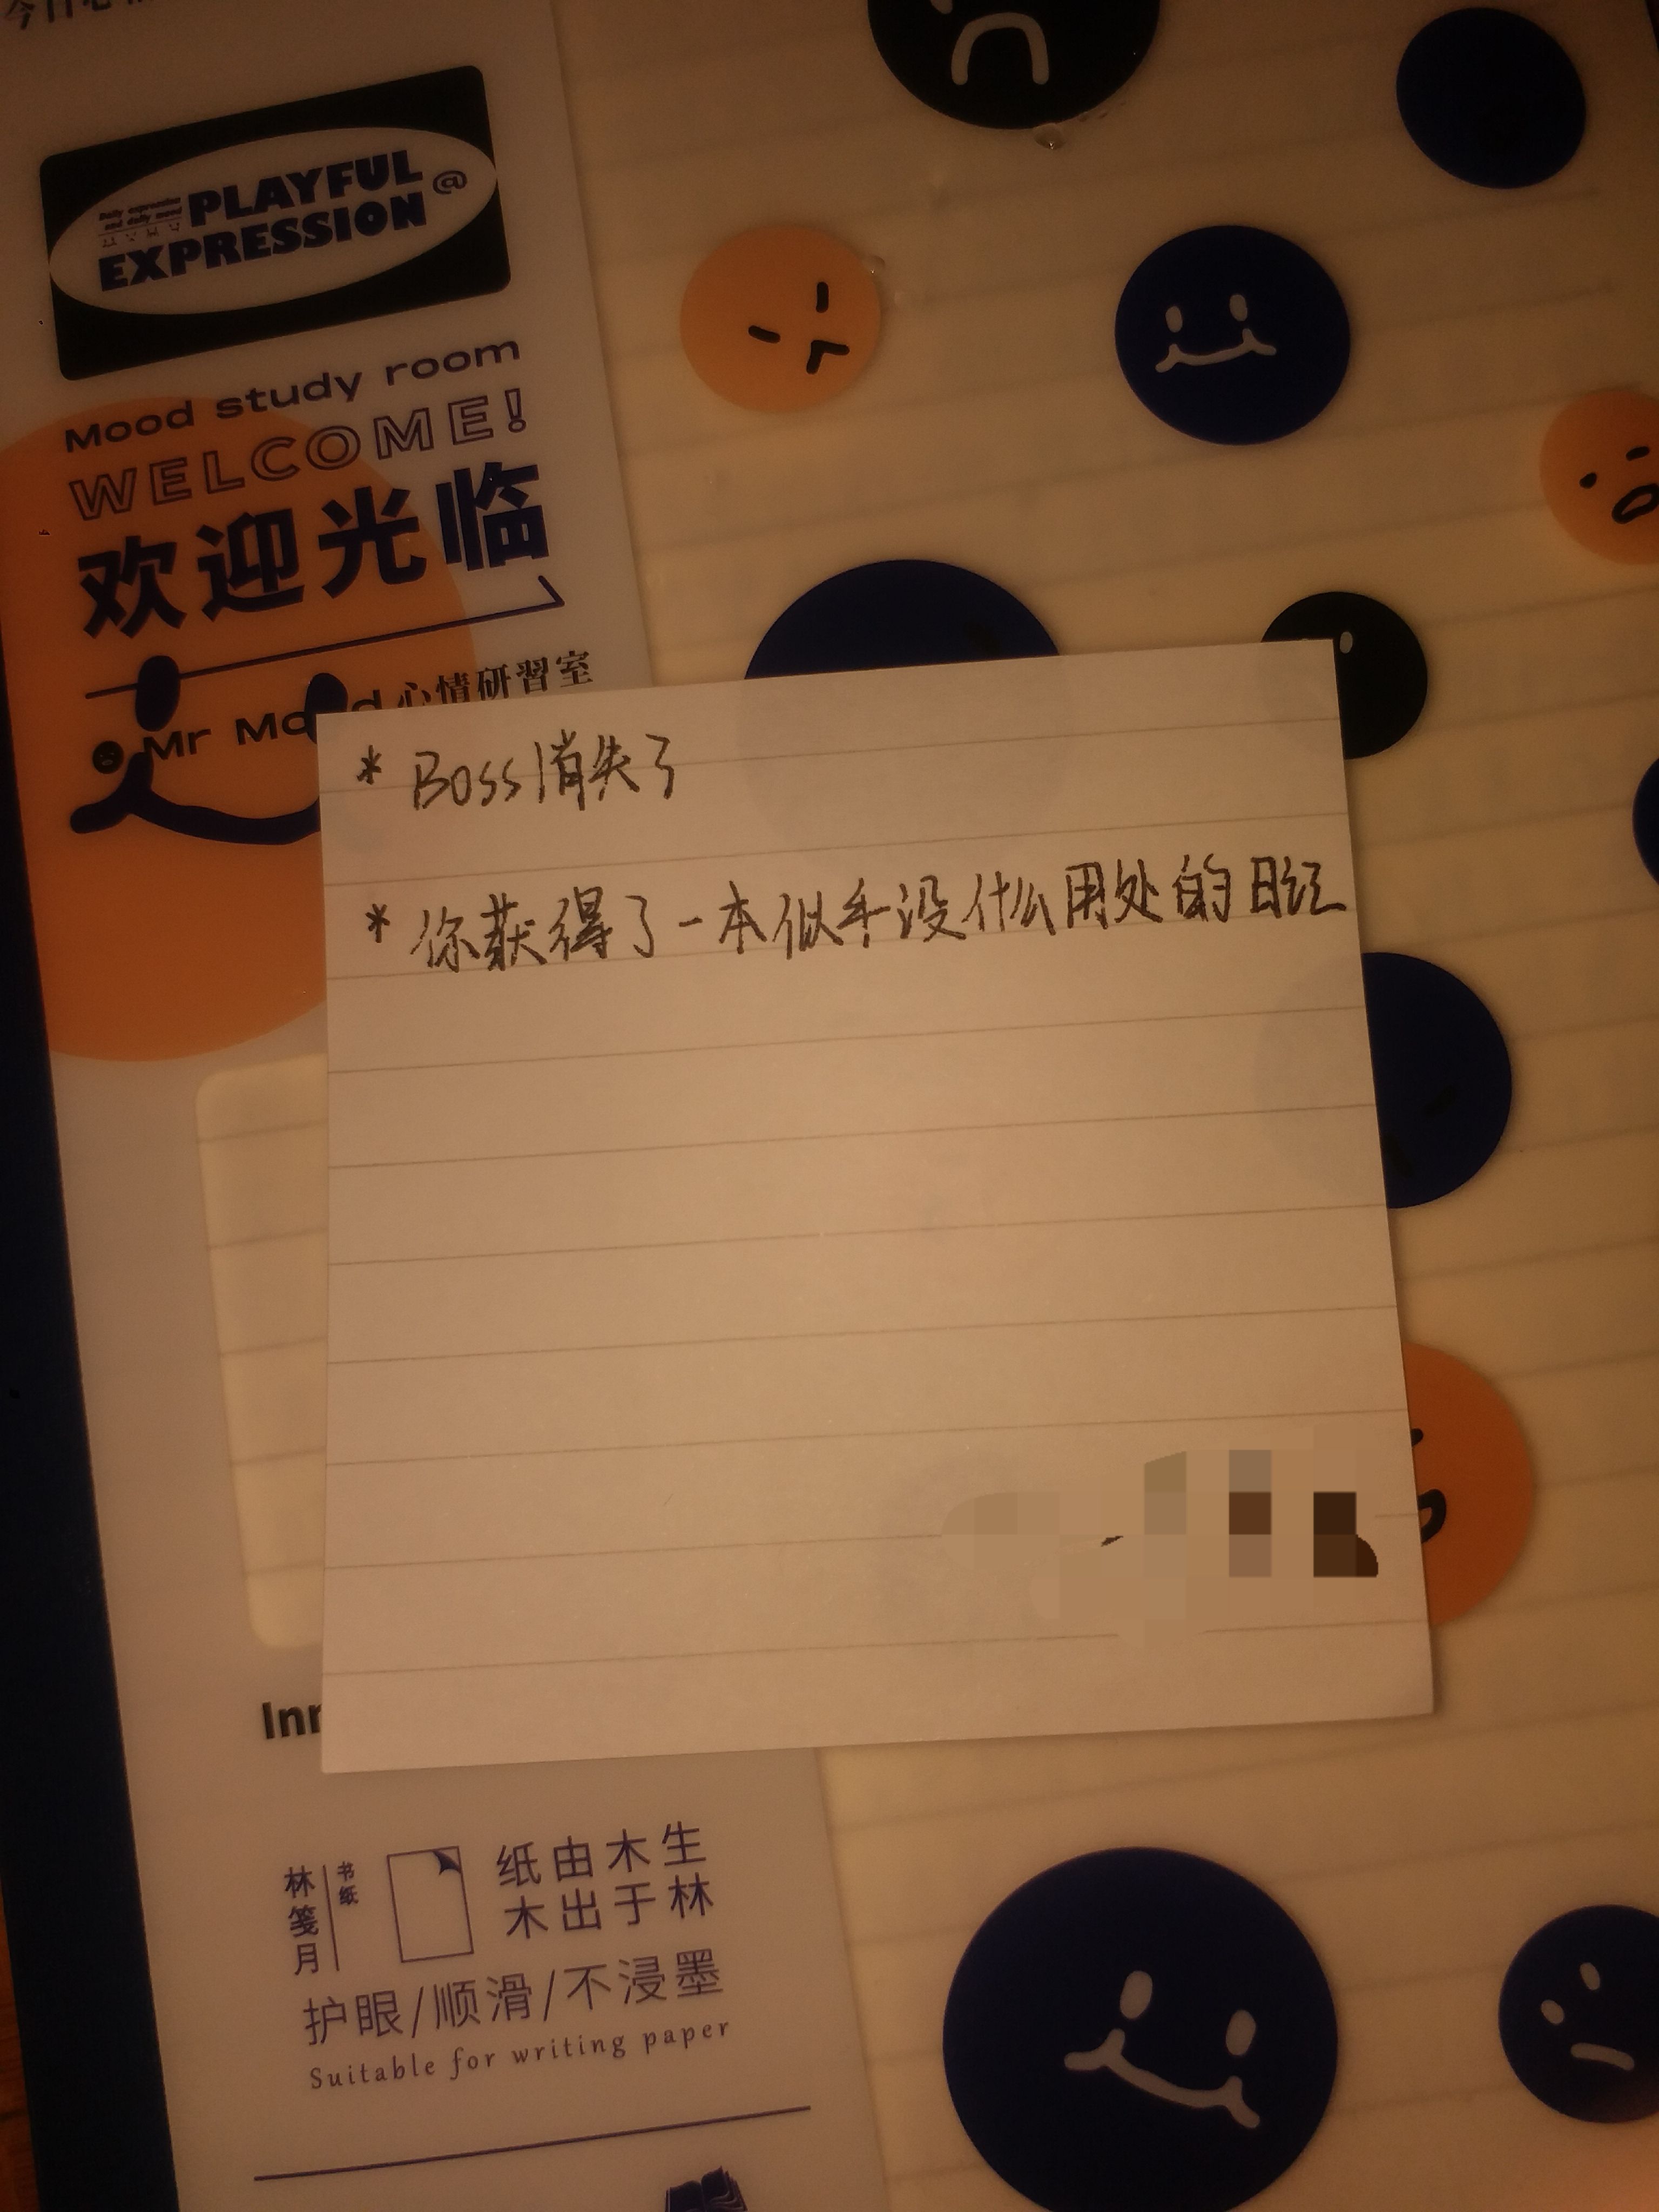 PLAYFUL @
EXPRESSION
Mood study room
WELCOME!
欢迎光临
Mr Mood 心情研習室
* Boss消失了
* 你获得了一本似乎没什么用处的日记
林笺月
书纸
纸由木生
木出于林
护眼/顺滑/不浸墨
Suitable for writing paper